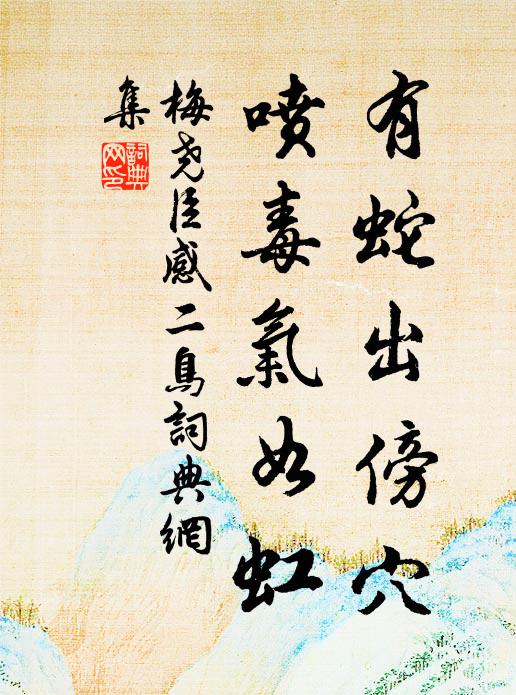 有蛇出傍穴
噴毒氣如虹
梅堯臣感二鳥詞典網
集
詞典
網印